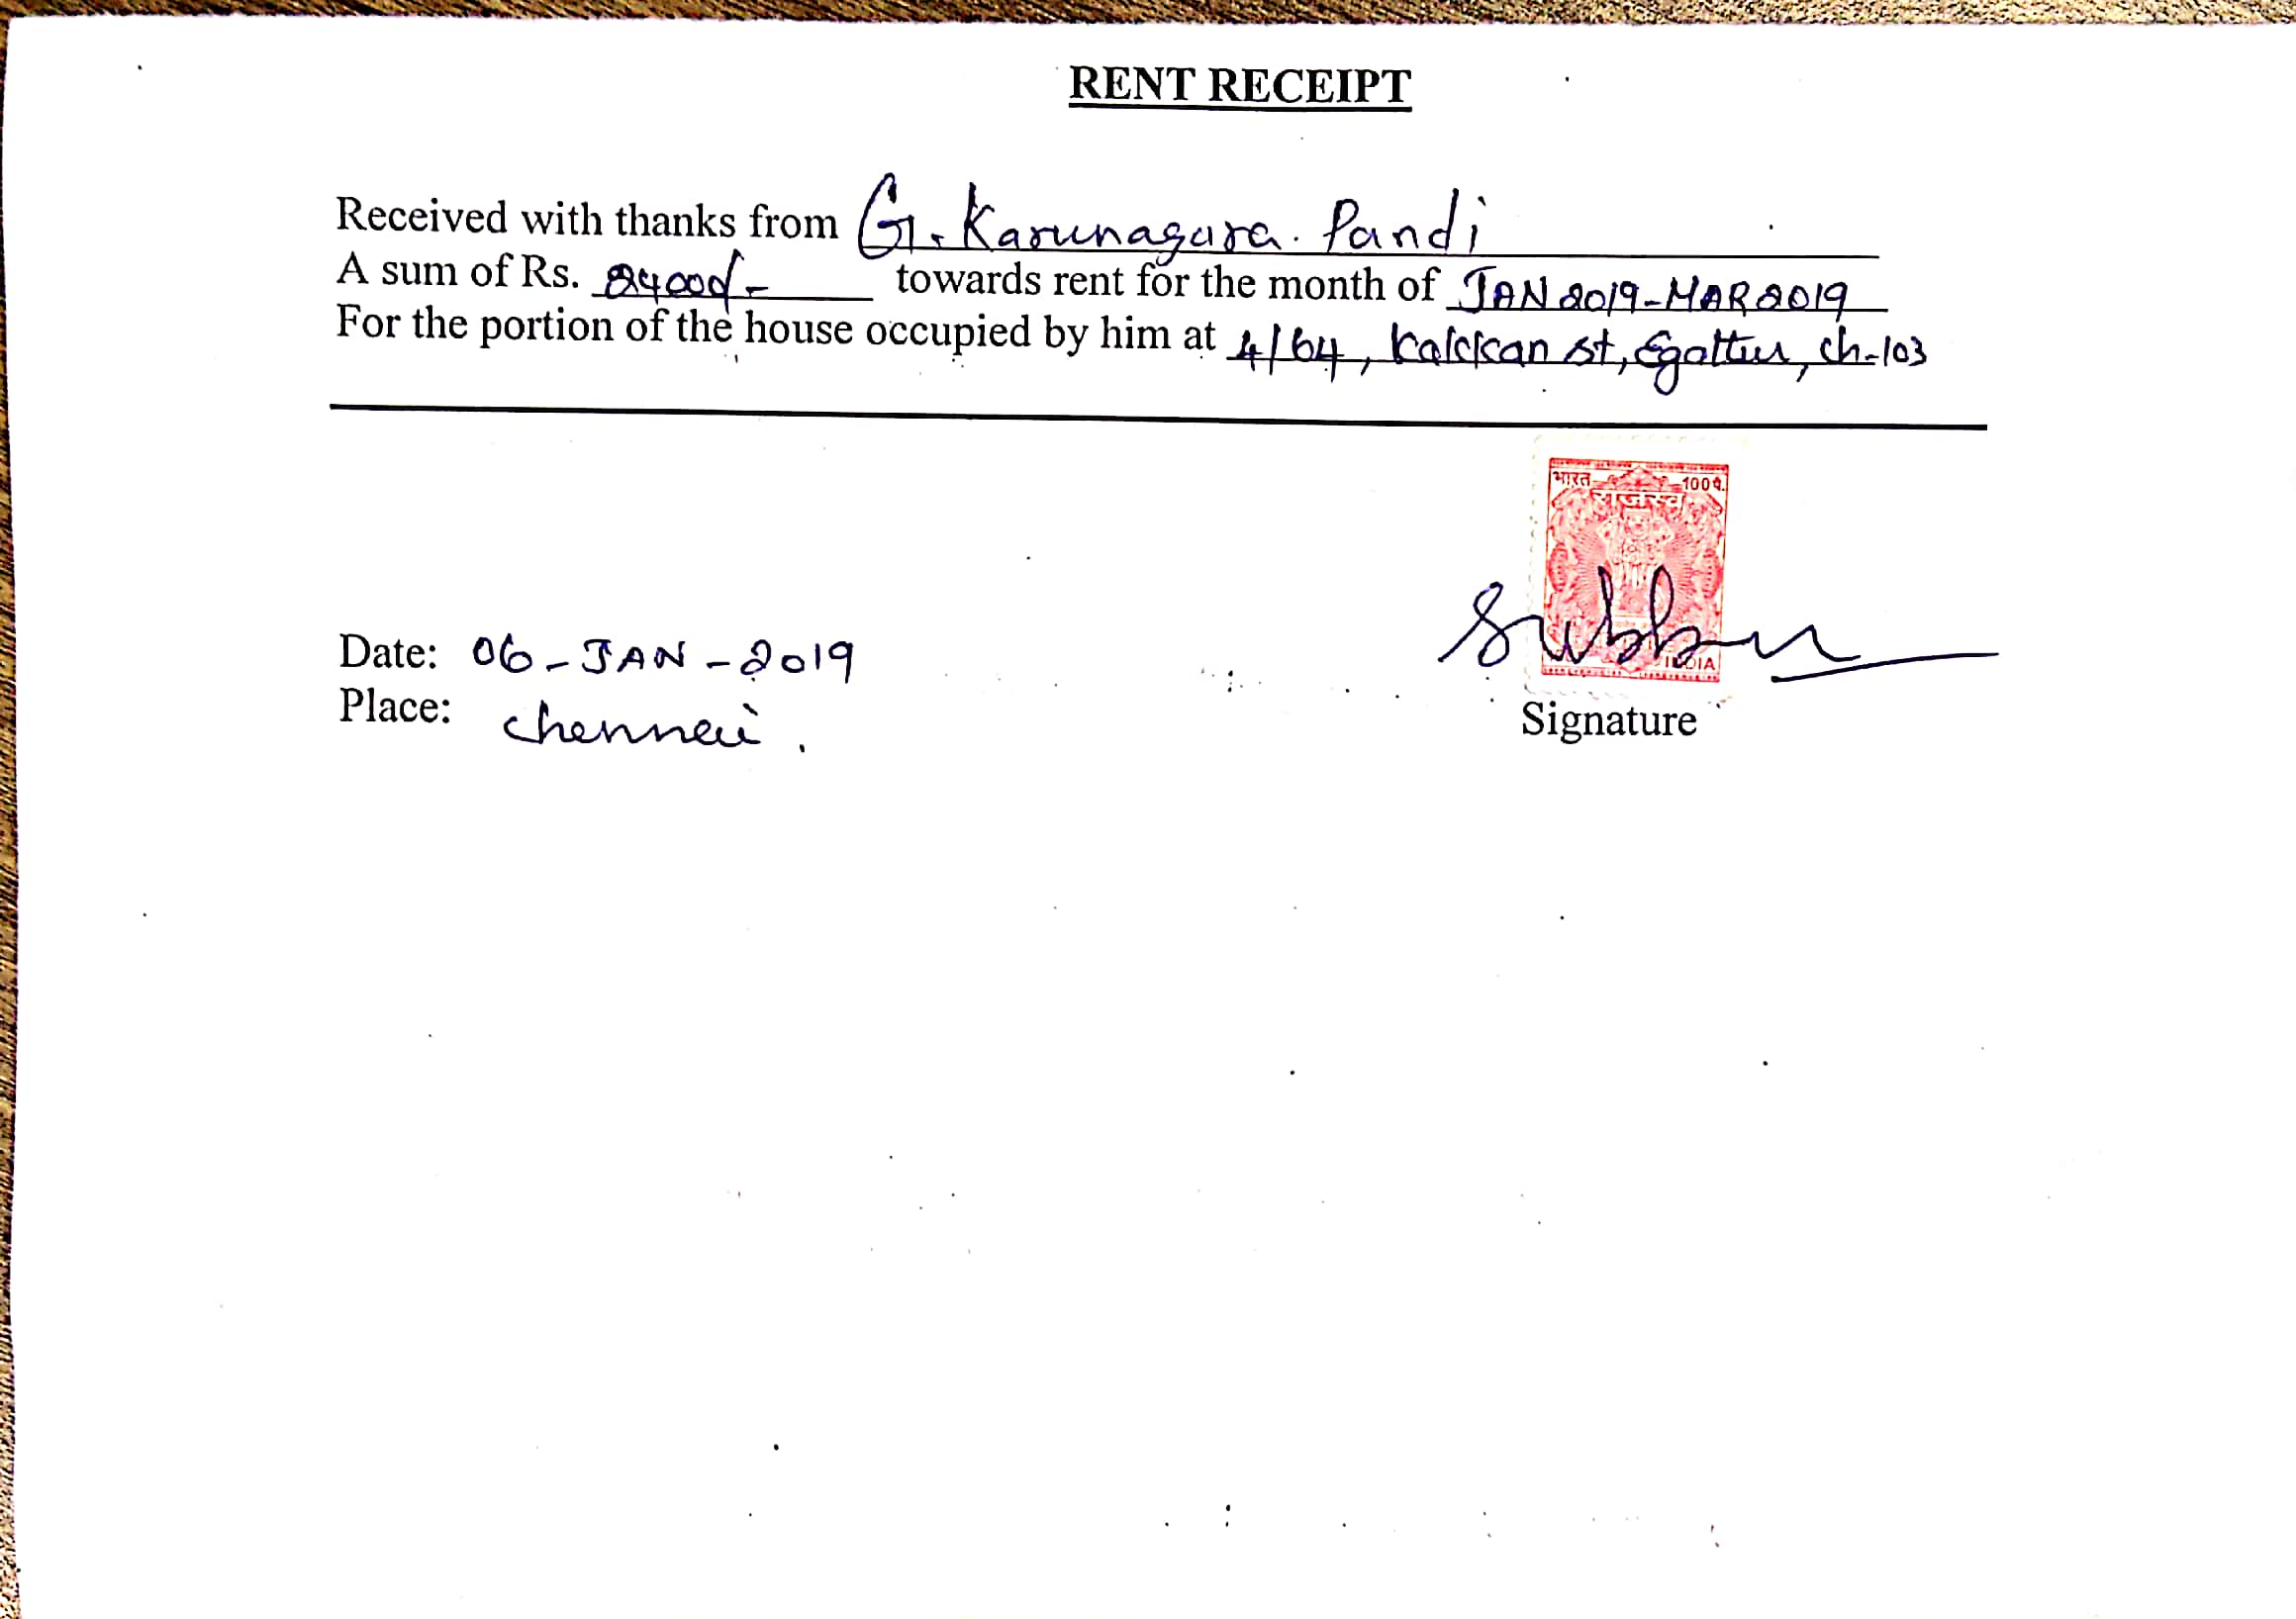 RENT RECEIPT
Received with thanks from G. Karunagara. Pandi
A sum of Rs. 24000/- towards rent for the month of JAN 2019-MAR 2019
For the portion of the house occupied by him at 4/64, Kakkan st, Egattur, ch-103
भारत 100 प.
राजस्व
INDIA
Subbu
Date: 06-JAN-2019
Place: Chennai.
Signature